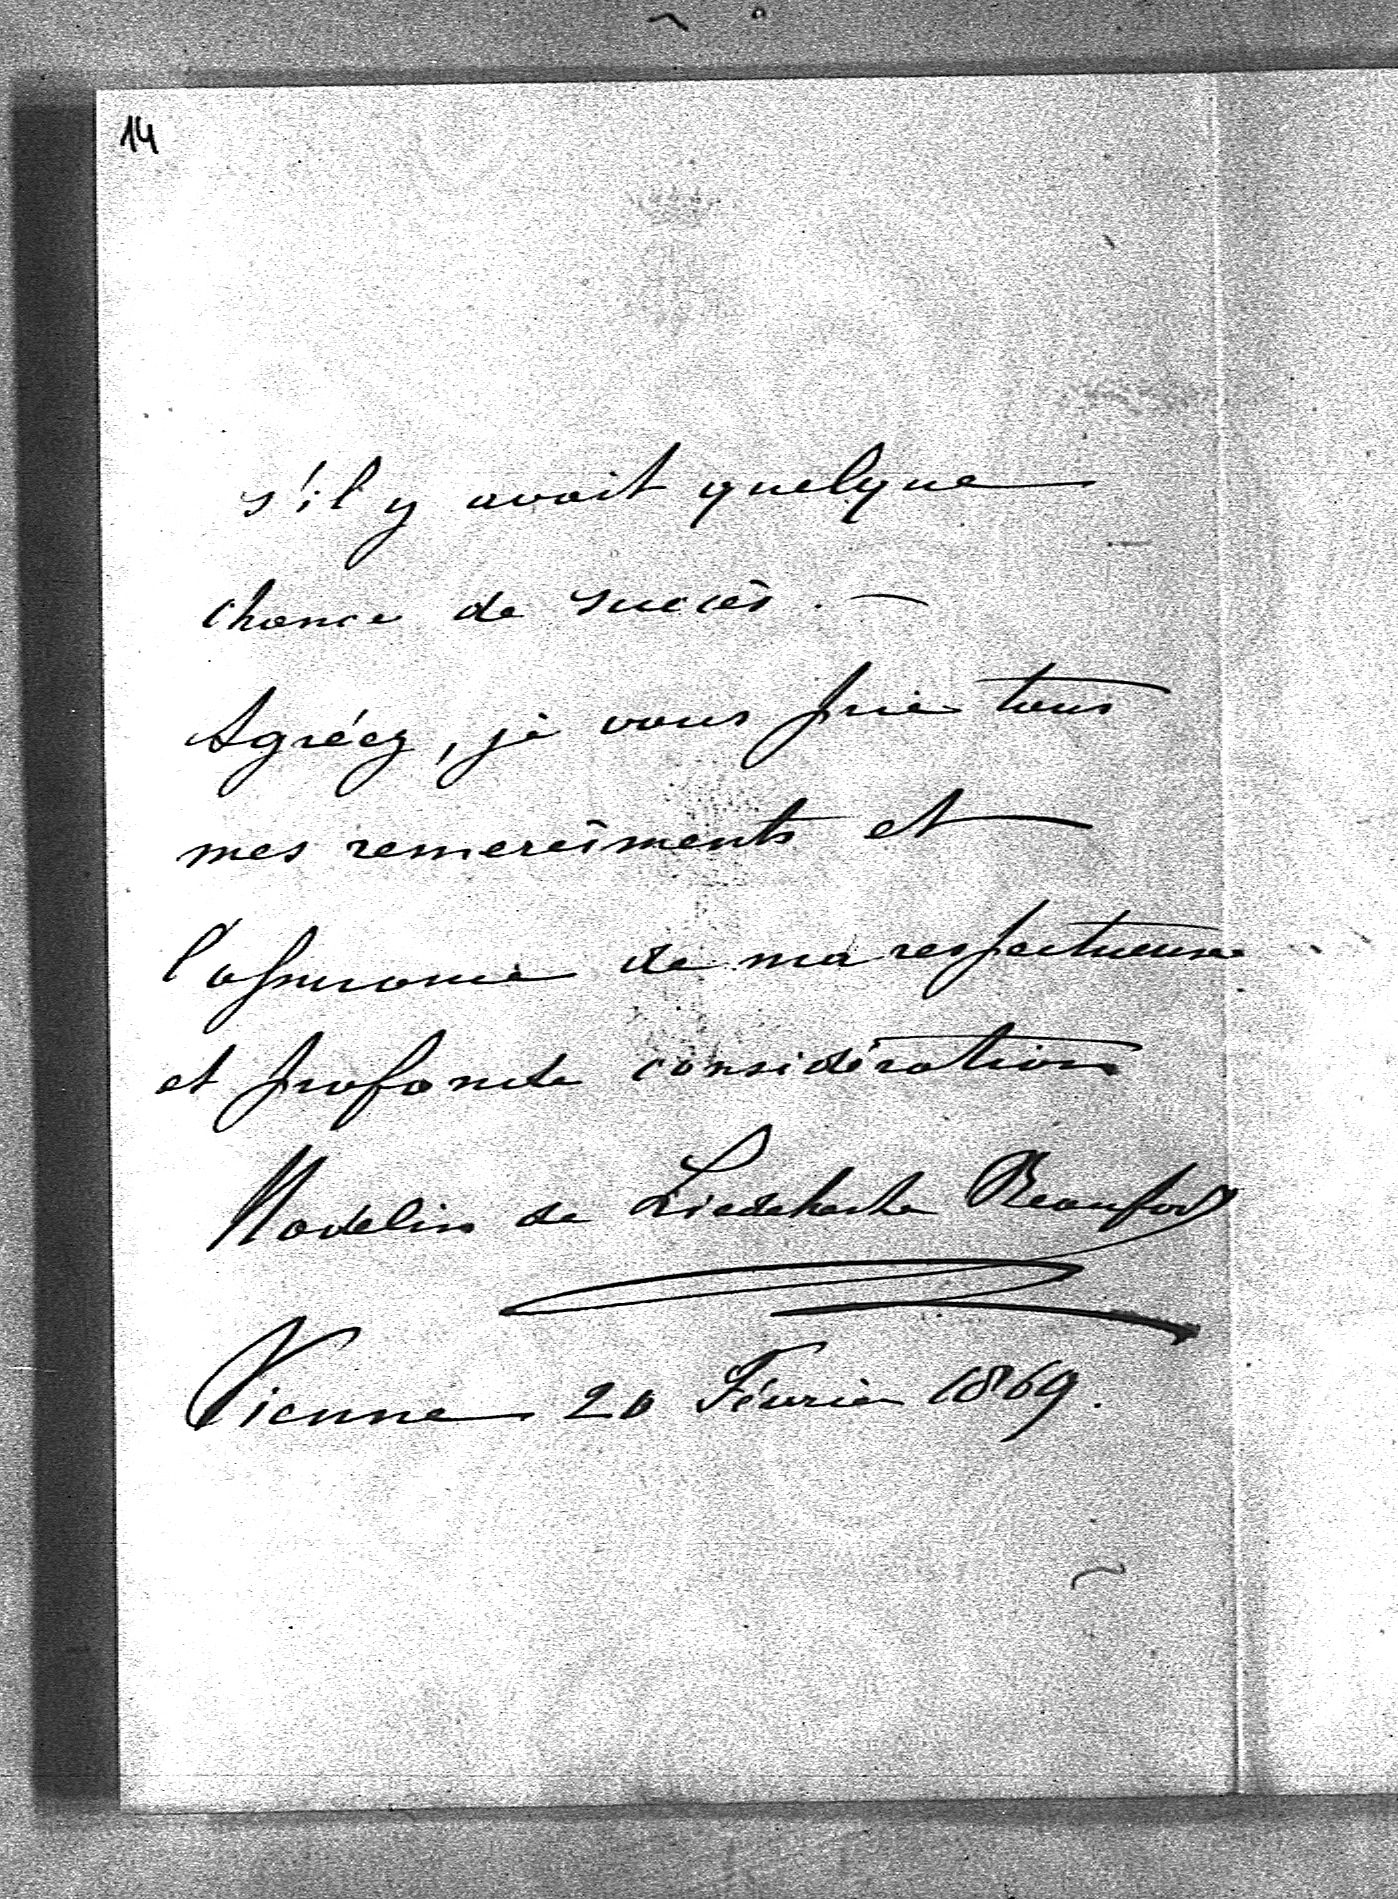 14
s'il y avait quelque
chance de succès. —
Agréez, je vous prie tous
mes remerciments et
l'assurance de ma respectueuse
et profonde considération
de Liedekerke Beaufort
Vienne 20 Février 1869.